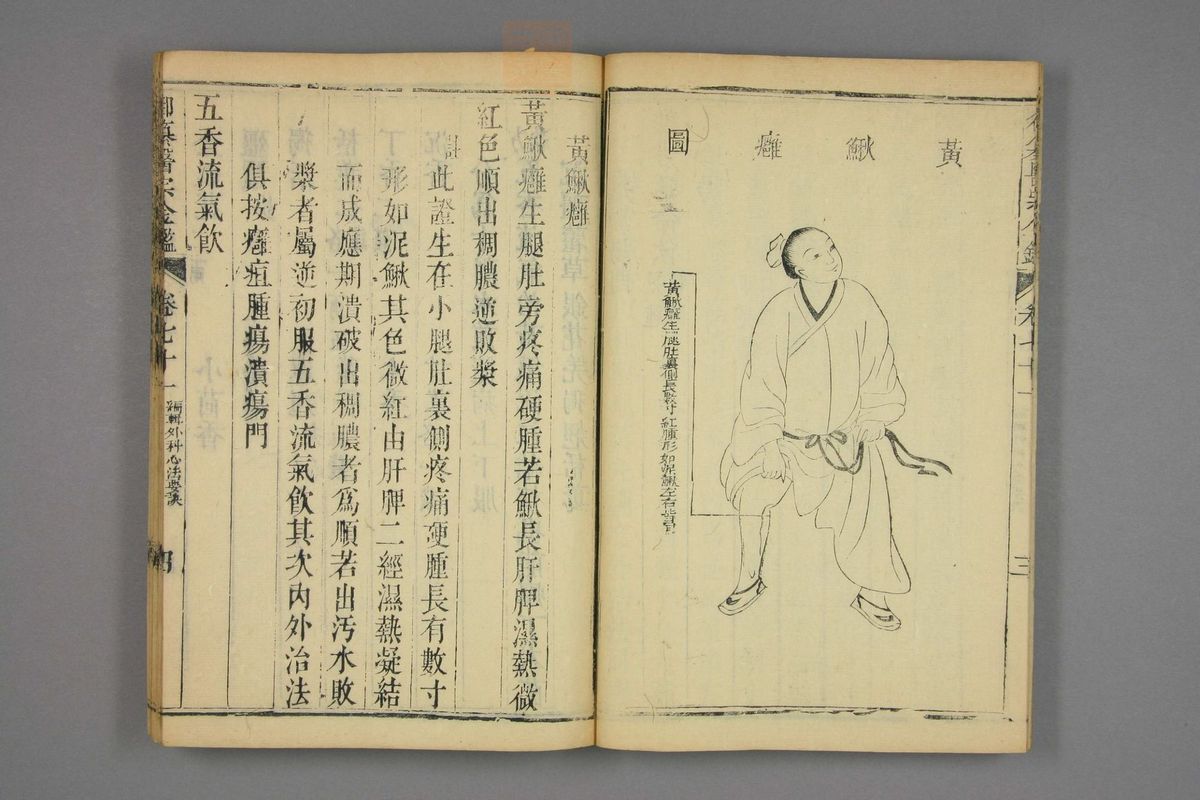 黃鰍癰圖
黃鰍癰生腿肚裏側長數寸紅腫形如泥鰍左右皆有
黃鰍癰
黃鰍癰生腿肚旁疼痛硬腫若鰍長肝脾濕熱微
紅色順出稠膿逆敗漿
註此證生在小腿肚裏側疼痛硬腫長有數寸
形如泥鰍其色微紅由肝脾二經濕熱凝結
而成應期潰破出稠膿者爲順若出污水敗
漿者屬逆初服五香流氣飲其次內外治法
俱按癰疽腫瘍潰瘍門
五香流氣飲
御纂醫宗金鑑 卷七十一 編輯外科心法要訣 四